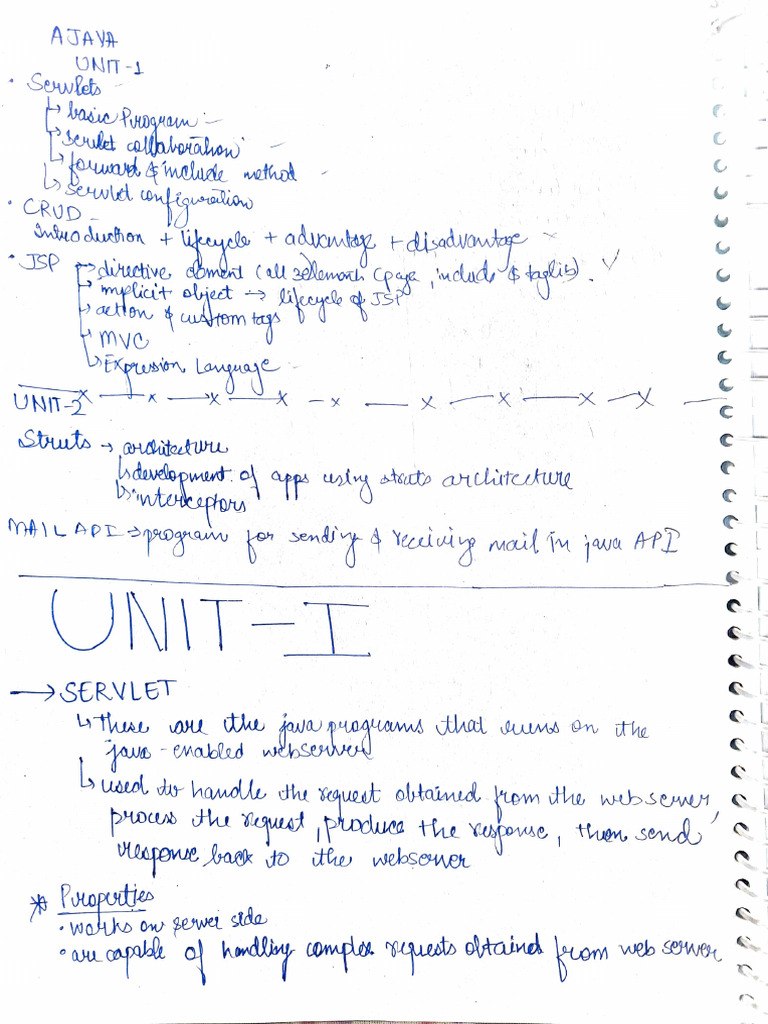 AJAVA
UNIT-1
• Servlets
↳ basic Program
↳ Servlet collaboration
↳ forward & include method
↳ Servlet configuration
• CRUD -
Introduction + lifecycle + advantage + disadvantage ×
• JSP → directive element (all 3 elements (page, include & taglib). ✓
→ implicit object → lifecycle of JSP
→ action & custom tags
→ MVC
↳ Expression Language
UNIT-2
Struts → architecture
↳ development of apps using struts architecture
↳ interceptors
MAIL API → program for sending & receiving mail in java API
UNIT-I
→ SERVLET
↳ These are the java programs that runs on the
java-enabled webserver
↳ used to handle the request obtained from the webserver,
process the request, produce the response, then send
response back to the webserver
* Properties
• works on server side
• are capable of handling complex requests obtained from web server